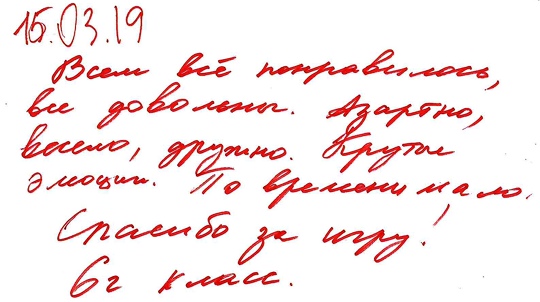 15.03.19
Всем всё понравилось,
все довольны. Азартно,
весело, дружно. Крутые
эмоции. По времени мало.
Спасибо за игру!
6г класс.